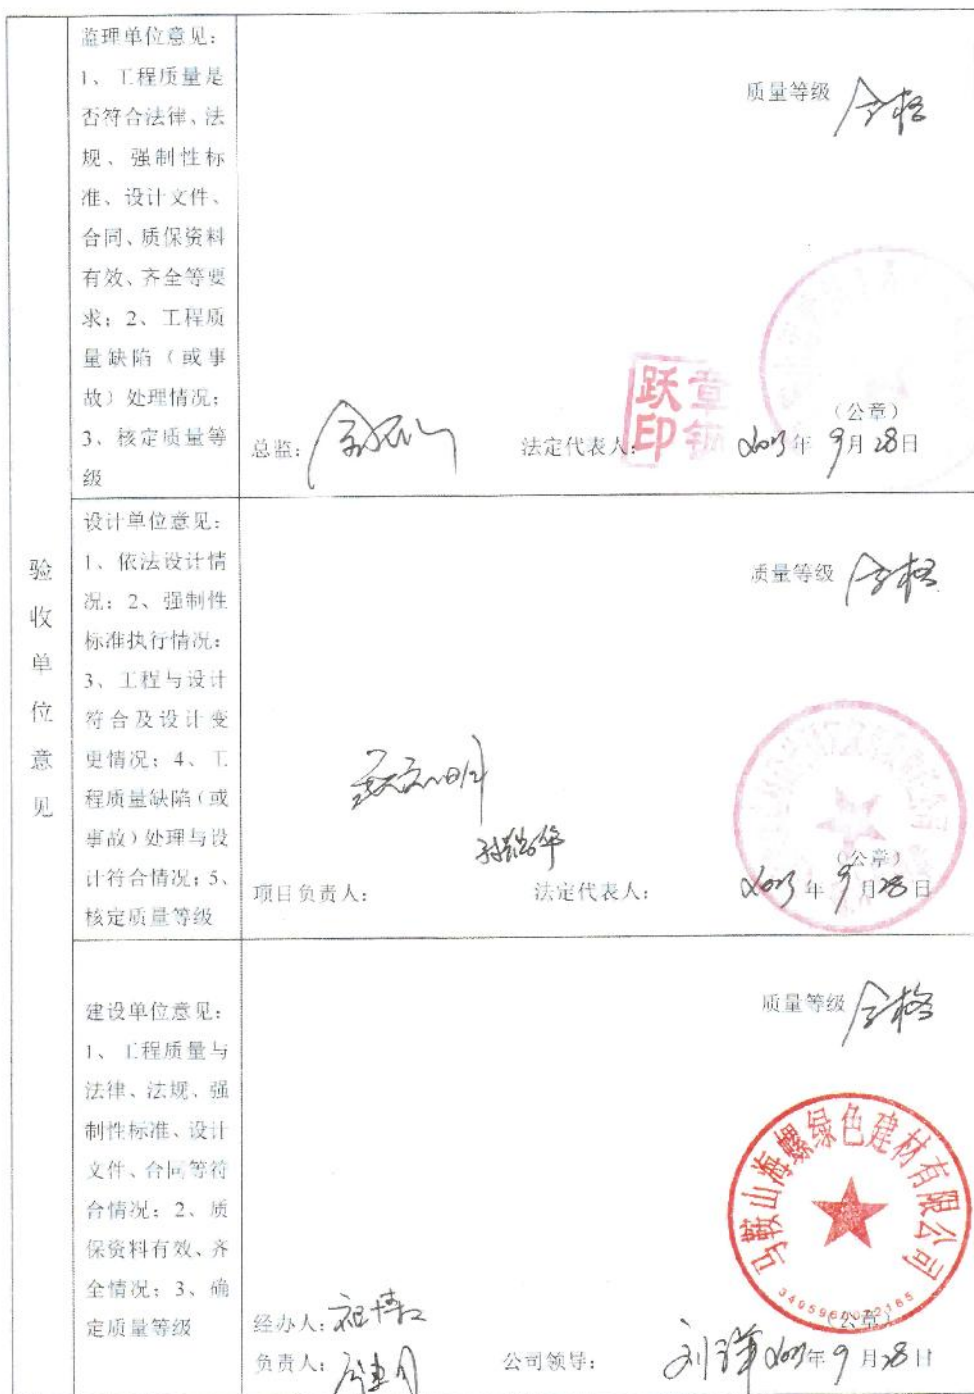 验收单位意见
监理单位意见：
1、工程质量是
否符合法律、法
规、强制性标
准、设计文件、
合同、质保资料
有效、齐全等要
求；2、工程质
量缺陷（或事
故）处理情况；
3、核定质量等
级
质量等级 合格
总监：
法定代表人：
跃章
印
（公章）
2023年 9月28日
设计单位意见：
1、依法设计情
况；2、强制性
标准执行情况；
3、工程与设计
符合及设计变
更情况；4、工
程质量缺陷（或
事故）处理与设
计符合情况；5、
核定质量等级
质量等级 合格
项目负责人：
法定代表人：
（公章）
2023年 9月28日
建设单位意见：
1、工程质量与
法律、法规、强
制性标准、设计
文件、合同等符
合情况；2、质
保资料有效、齐
全情况；3、确
定质量等级
质量等级 合格
马鞍山海螺绿色建材有限公司
经办人：
负责人：
公司领导：
（公章）
2023年9月28日